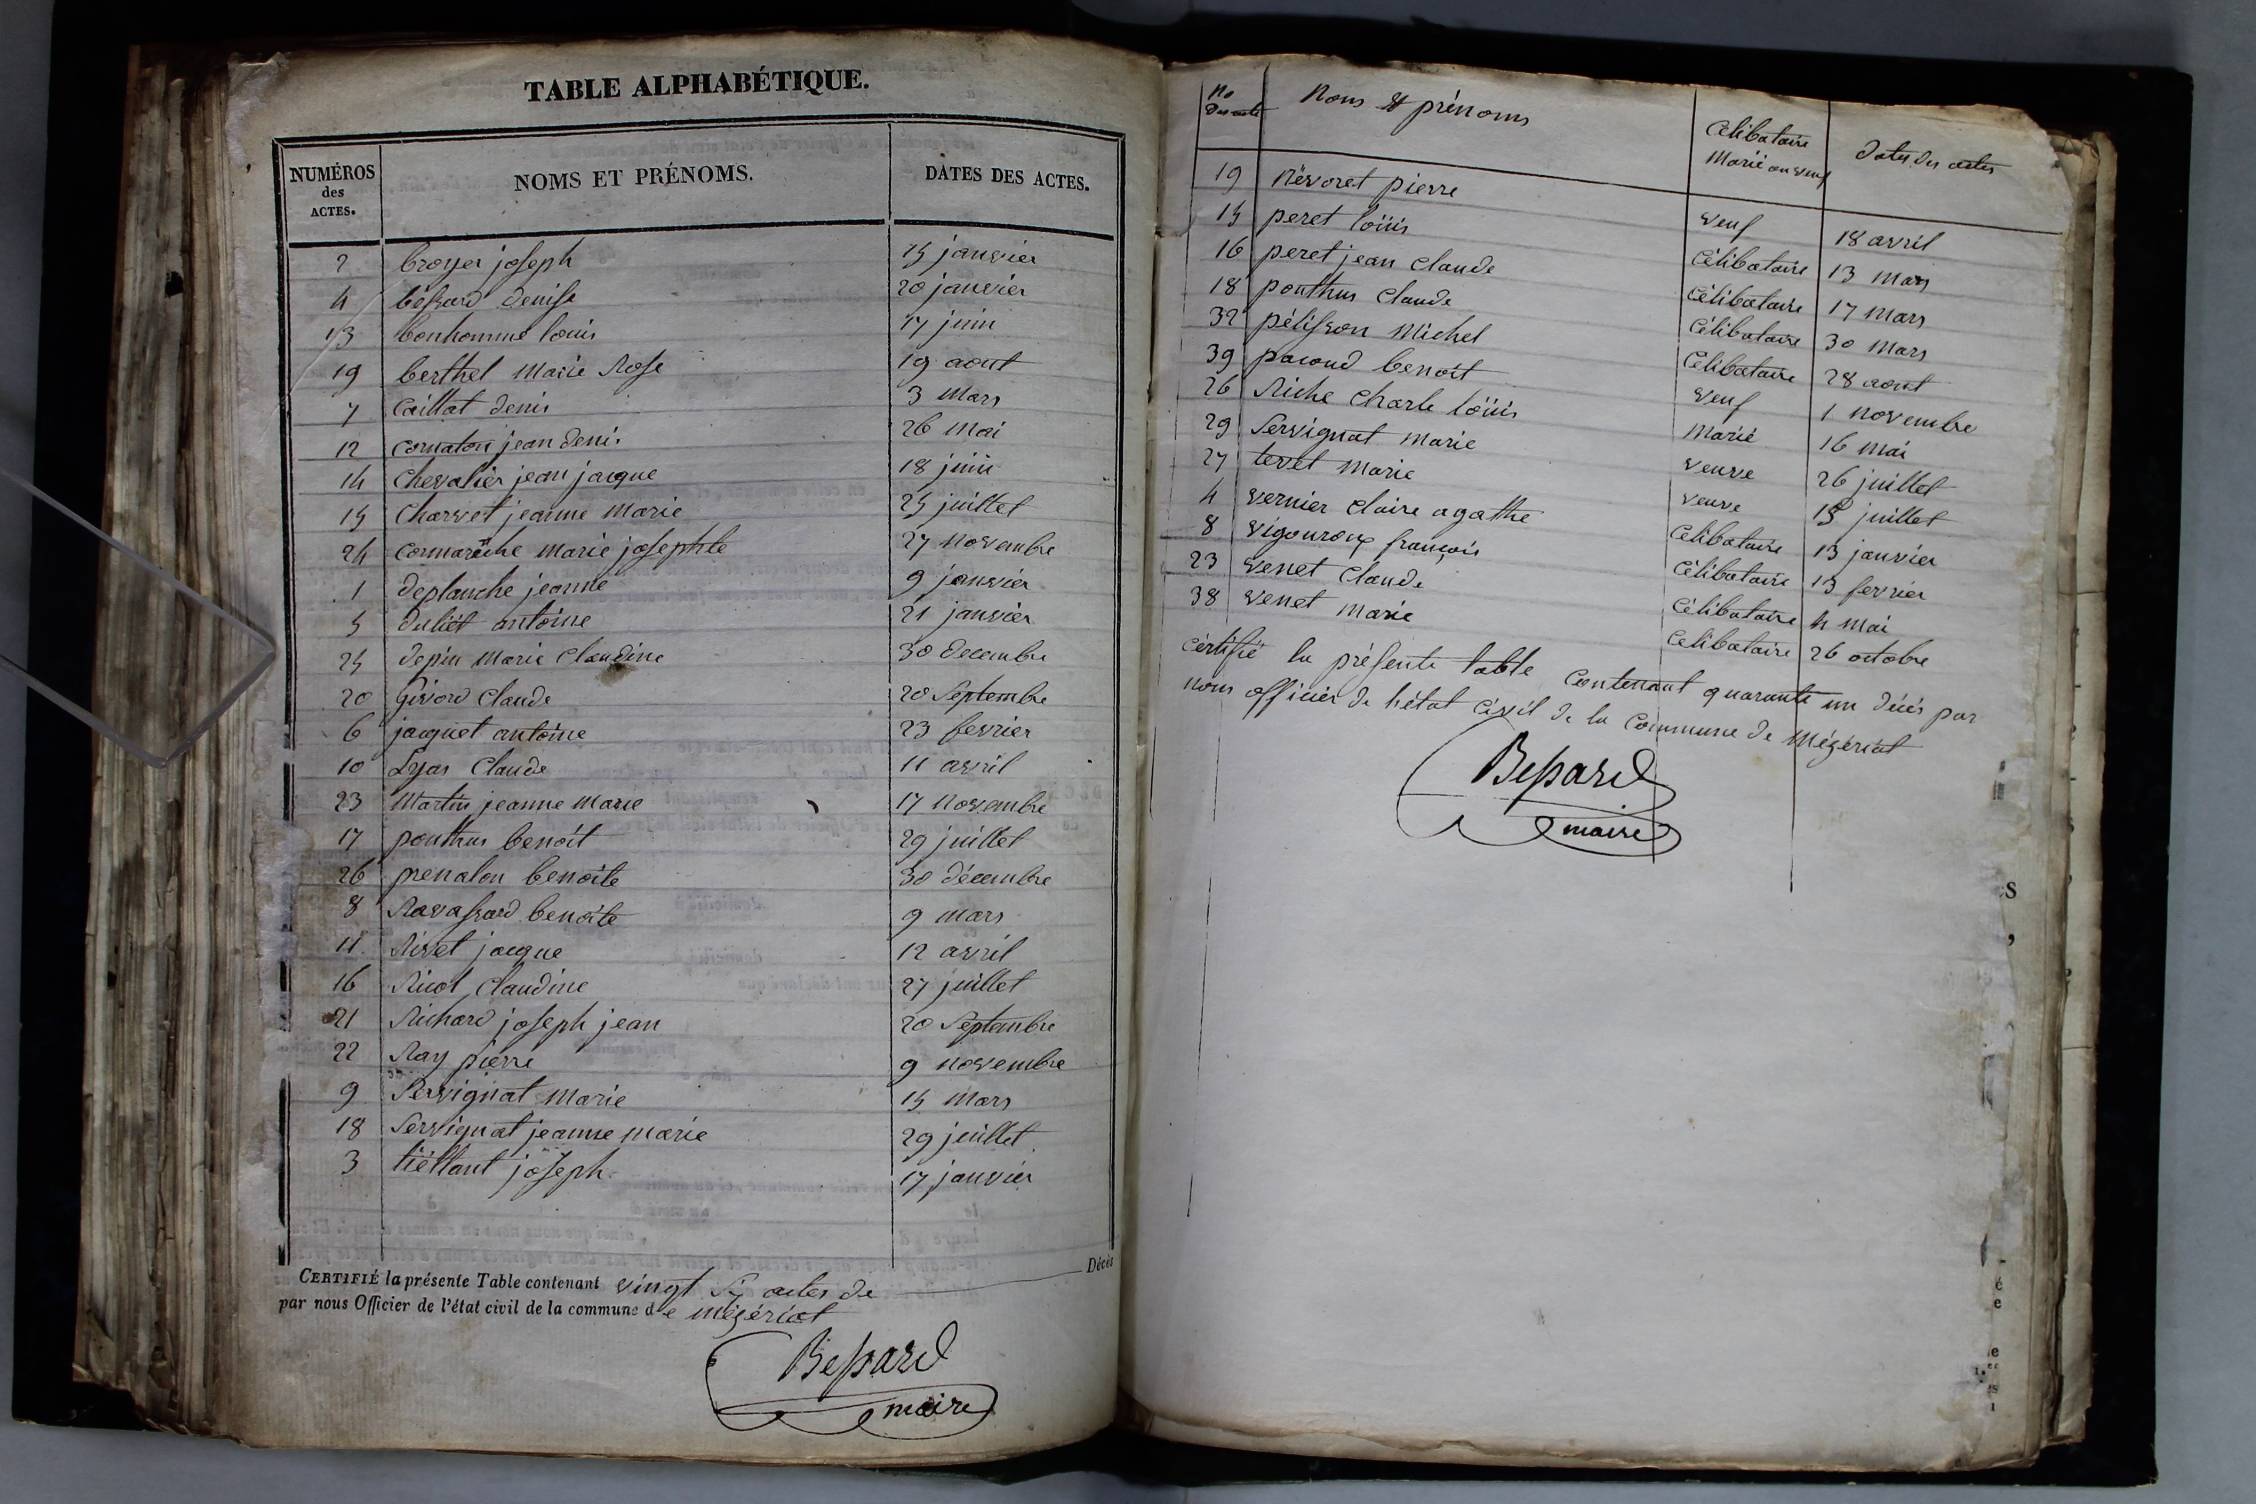 TABLE ALPHABÉTIQUE.
NUMÉROS des ACTES. NOMS ET PRÉNOMS. DATES DES ACTES.
2 broyer joseph 15 janvier
4 bessard denise 20 janvier
13 bonhomme louis 17 juin
19 berthel marie Rose 19 aout
7 Caillat denis 3 mars
12 cornaton jean denis 26 mai
14 chevalier jean jacque 18 juin
15 charvet jeanne marie 25 juillet
24 cormarèche marie josephte 27 novembre
1 deplanche jeanne 9 janvier
5 duliet antoine 21 janvier
25 depin marie Claudine 30 decembre
20 Givord Claude 20 Septembre
6 jacquet antoine 23 fevrier
10 Lyas Claude 11 avril
23 Martin jeanne marie 17 novembre
17 ponthus benoit 29 juillet
26 prenalon benoite 30 décembre
8 Ravassard benoite 9 mars
11 Rivet jacque 12 avril
16 Ricol Claudine 27 juillet
21 Richard joseph jean 20 Septembre
22 Ray pierre 9 novembre
9 Servignat marie 15 mars
18 Servignat jeanne marie 29 juillet
3 tiéllant joseph 17 janvier
CERTIFIÉ la présente Table contenant vingt Six actes de Décès
par nous Officier de l'état civil de la commune de mézériat
Bessard
maire
No des acte Noms & prénoms Célibataire Marié ou veuf dates des actes
19 Névoret pierre veuf 18 avril
15 peret loüis Célibataire 13 mars
16 peret jean Claude Célibataire 17 mars
18 ponthus Claude Célibataire 30 mars
32 pélisson Michel Célibataire 28 aout
39 pacoud benoit veuf 1 novembre
26 Riche Charle loüis marié 16 mai
29 Servignat marie veuve 26 juillet
27 tevet marie veuve 15 juillet
4 vernier Claire agathe Célibataire 13 janvier
8 vigouroux françois Célibataire 13 fevrier
23 venet Claude Célibataire 4 mai
38 venet marie Célibataire 26 octobre
certifié la présente table Contenant quarante un décès par
nous officier de l'état Civil de la Commune de Mézériat
Bessard
maire